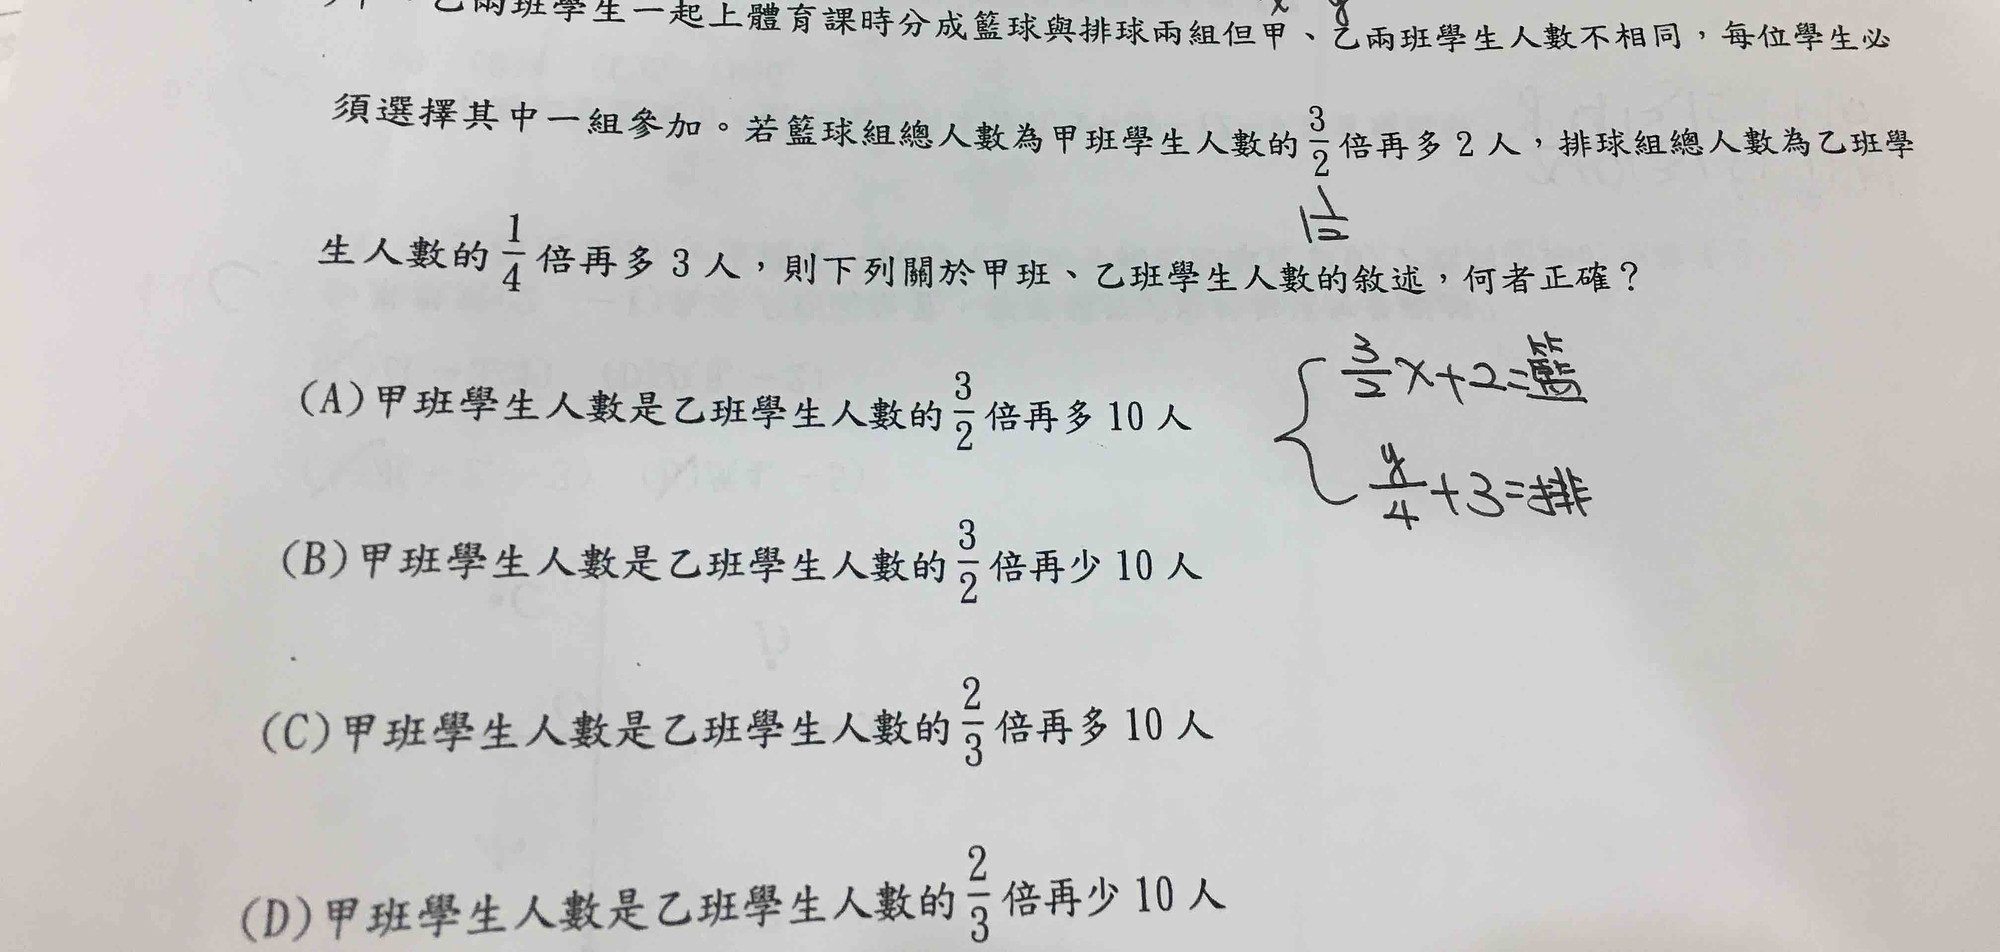 乙兩班學生一起上體育課時分成籃球與排球兩組但甲、乙兩班學生人數不相同，每位學生必
x y
須選擇其中一組參加。若籃球組總人數為甲班學生人數的 3/2 倍再多 2 人，排球組總人數為乙班學
1 1/2
生人數的 1/4 倍再多 3 人，則下列關於甲班、乙班學生人數的敘述，何者正確？
(A)甲班學生人數是乙班學生人數的 3/2 倍再多 10 人
3/2 x+2=籃
y/4 +3=排
(B)甲班學生人數是乙班學生人數的 3/2 倍再少 10 人
(C)甲班學生人數是乙班學生人數的 2/3 倍再多 10 人
(D)甲班學生人數是乙班學生人數的 2/3 倍再少 10 人